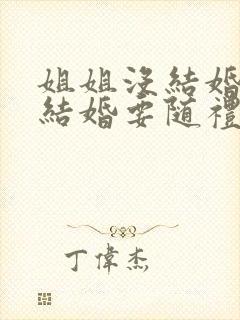 姐姐沒結婚
結婚要隨禮
丁偉杰